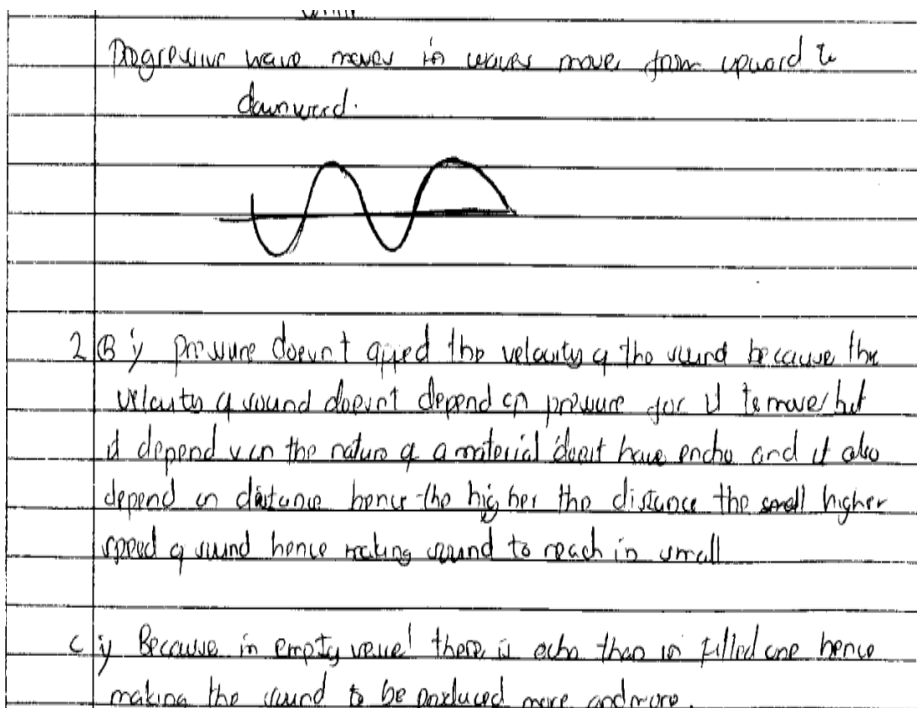 Progressive wave moves in waves move from upward to
downward.
2 B i) pressure doesn't affed the velocity of the sound because the
velocity of sound doesn't depend on pressure for it to move but
it depend on the nature of a material does it have encho and it also
depend on distance hence the higher the distance the small higher
speed of sound hence making sound to reach in small
C i) Because in empty vessel there is echo than in filled one hence
making the sound to be produced more and more.